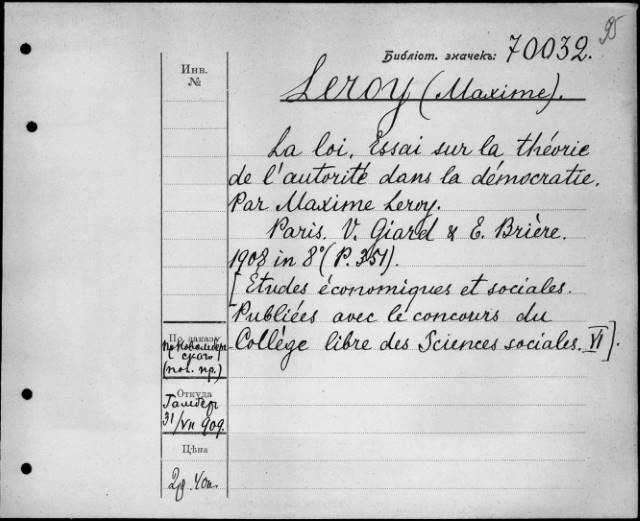 95
Библіот. значекъ: 70032.
Инв.
№
Leroy (Maxime).
La loi. Essai sur la théorie
de l'autorité dans la démocratie.
Par Maxime Leroy.
Paris. V. Giard & E. Brière.
1908 in 8° (P. 351).
[Études économiques et sociales.
Publiées avec le concours du
Collège libre des Sciences sociales. VI].
По заказу
ского
Откуда
31/VII 909.
Цѣна
2р. 40к.